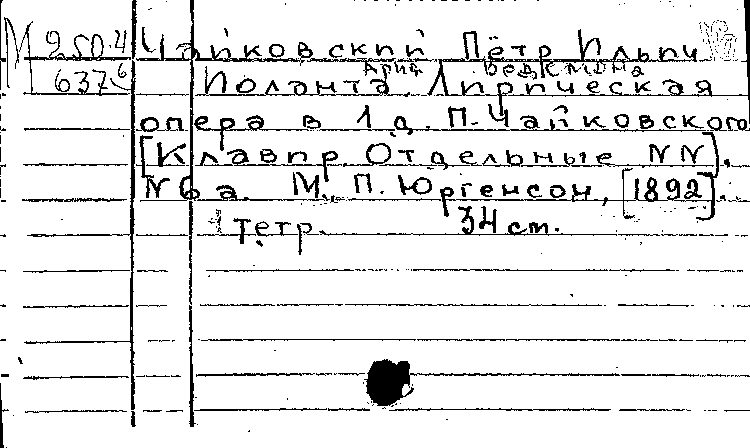 М 250.4 Чайковский Пётр Ильич
637 6 Ария Ведкмона
Иоланта. Лирическая
опера в 1 д. П. Чайковского
[Клавир. Отдельные NN].
N 6 а. М., П. Юргенсон, [1892].
1 тетр. 34 cm.